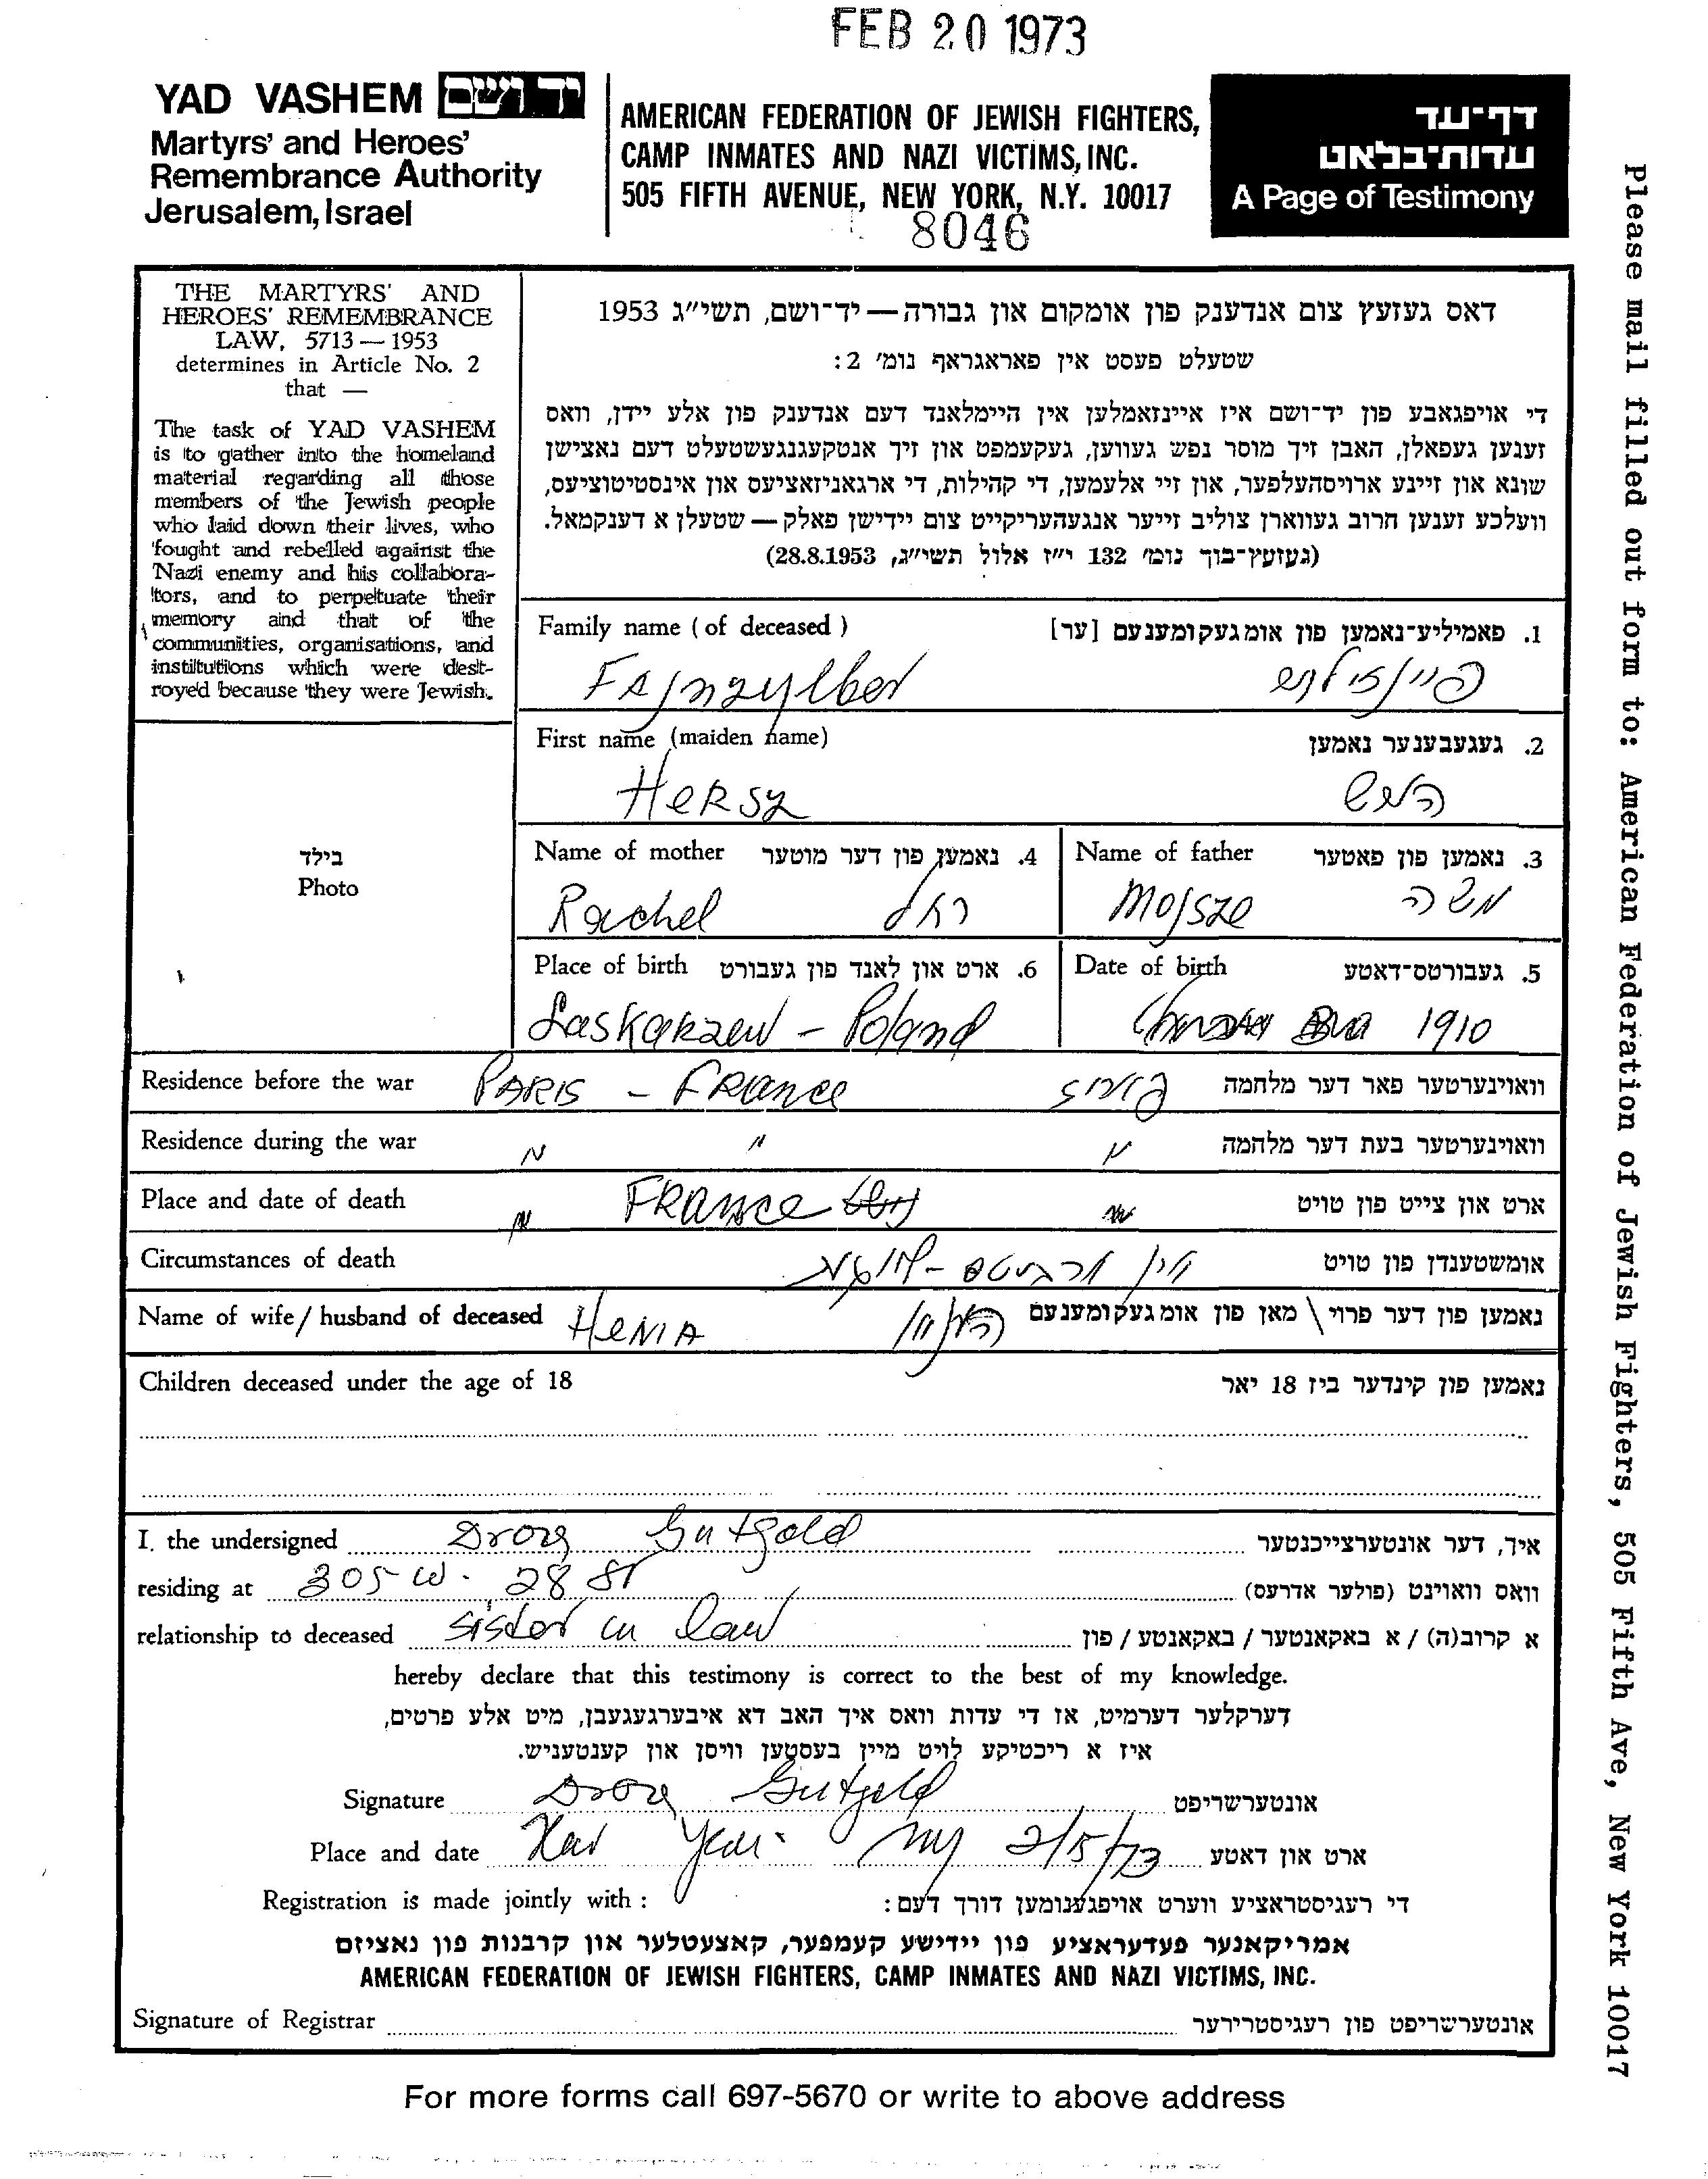 FEB 20 1973
YAD VASHEM יד ושם
Martyrs' and Heroes'
Remembrance Authority
Jerusalem, Israel
AMERICAN FEDERATION OF JEWISH FIGHTERS,
CAMP INMATES AND NAZI VICTIMS, INC.
505 FIFTH AVENUE, NEW YORK, N.Y. 10017
8046
דף־עד
עדות־בלאט
A Page of Testimony
Please mail filled out form to: American Federation of Jewish Fighters, 505 Fifth Ave, New York 10017
THE MARTYRS' AND
HEROES' REMEMBRANCE
LAW, 5713 — 1953
determines in Article No. 2
that —
The task of YAD VASHEM
is to gather into the homeland
material regarding all those
members of the Jewish people
who laid down their lives, who
fought and rebelled against the
Nazi enemy and his collabora-
tors, and to perpetuate their
memory and that of the
communities, organisations, and
institutions which were dest-
royed because they were Jewish.
דאס געזעץ צום אנדענק פון אומקום און גבורה — יד־ושם, תשי״ג 1953
שטעלט פעסט אין פאראגראף נומ׳ 2:
די אויפגאבע פון יד־ושם איז איינזאמלען אין היימלאנד דעם אנדענק פון אלע יידן, וואס
זענען געפאלן, האבן זיך מוסר נפש געווען, געקעמפט און זיך אנטקעגנגעשטעלט דעם נאצישן
שונא און זיינע ארויסהעלפער, און זיי אלעמען, די קהילות, די ארגאניזאציעס און אינסטיטוציעס,
וועלכע זענען חרוב געווארן צוליב זייער אנגעהעריקייט צום יידישן פאלק — שטעלן א דענקמאל.
(געזעץ־בוך נומ׳ 132 י״ז אלול תשי״ג, 28.8.1953)
בילד
Photo
Family name (of deceased) 1. פאמיליע־נאמען פון אומגעקומענעם [ער]
Fajnzylber
First name (maiden name) 2. געגעבענער נאמען
Hersz הערש
Name of mother 4. נאמען פון דער מוטער Name of father 3. נאמען פון פאטער
Rachel רחל Mojsze משה
Place of birth 6. ארט און לאנד פון געבורט Date of birth 5. געבורטס־דאטע
Laskarzew - Poland 1910
Residence before the war PARIS - FRance פאריז וואוינערטער פאר דער מלחמה
Residence during the war " " " וואוינערטער בעת דער מלחמה
Place and date of death " FRance " ארט און צייט פון טויט
Circumstances of death אומשטענדן פון טויט
Name of wife / husband of deceased HeNIA נאמען פון דער פרוי \ מאן פון אומגעקומענעם
Children deceased under the age of 18 נאמען פון קינדער ביז 18 יאר
I, the undersigned Gutgold איך, דער אונטערצייכנטער
residing at 305 W. 28 St וואס וואוינט (פולער אדרעס)
relationship to deceased sister in law א קרוב(ה) / א באקאנטער / באקאנטע / פון
hereby declare that this testimony is correct to the best of my knowledge.
דערקלער דערמיט, אז די עדות וואס איך האב דא איבערגעגעבן, מיט אלע פרטים,
איז א ריכטיקע לויט מיין בעסטען וויסן און קענטעניש.
Signature Gutgold אונטערשריפט
Place and date NY 2/15/73 ארט און דאטע
Registration is made jointly with : די רעגיסטראציע ווערט אויפגענומען דורך דעם:
אמריקאנער פעדעראציע פון יידישע קעמפער, קאצעטלער און קרבנות פון נאציזם
AMERICAN FEDERATION OF JEWISH FIGHTERS, CAMP INMATES AND NAZI VICTIMS, INC.
Signature of Registrar אונטערשריפט פון רעגיסטרירער
For more forms call 697-5670 or write to above address